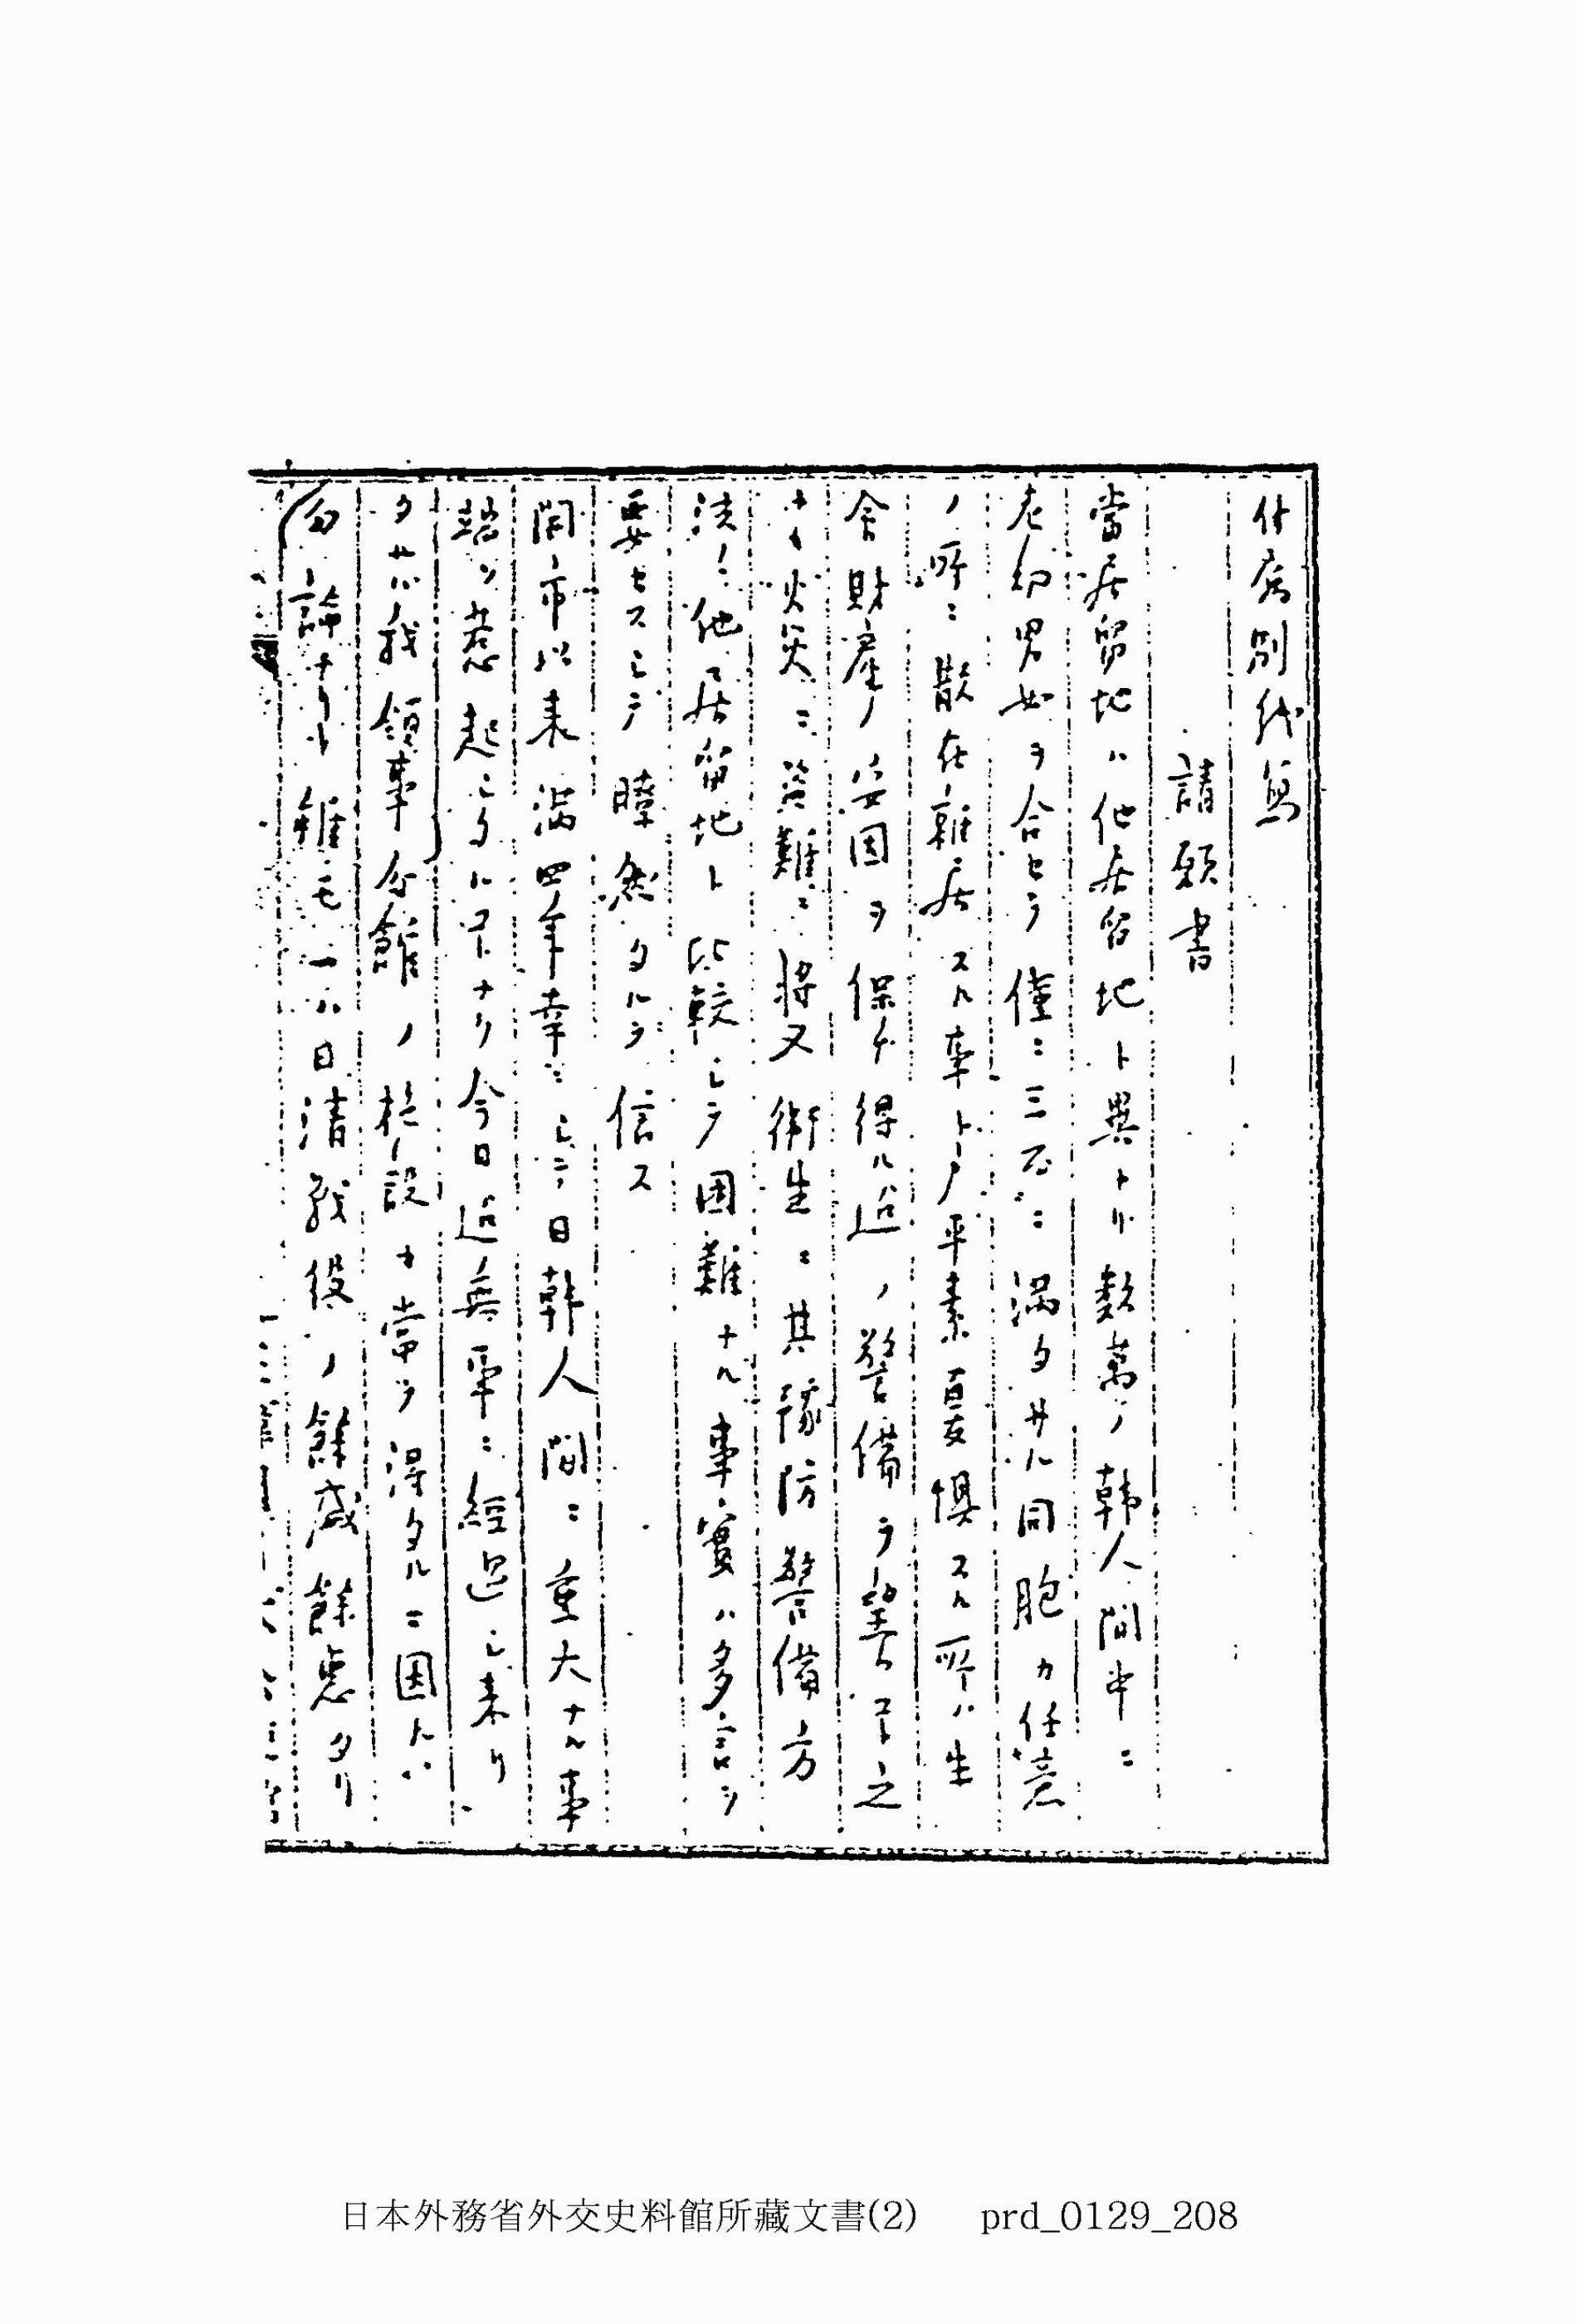 附屬別紙寫
請願書
當居留地ハ他居留地ト異ナリ數萬ノ韓人間中ニ
老幼男女ヲ合セテ僅ニ三百ニ満タサル同胞カ任意
ノ所ニ散在雜居スル事トテ平素憂惧スル所ハ生
命財産ノ安固ヲ保チ得ル迠ノ警備ヲ望ム下之
ナク火災ニ盗難ニ將又衛生ニ其豫防警備方
法ハ他居留地ト比較シテ困難ナル事實ハ多言ヲ
要セスシテ瞭然タルヲ信ス
開市以来満四年幸ニシテ日韓人間ニ重大ナル事
端ヲ惹起シタルヿナク今日迠無事ニ經過シ来リ
タルハ我領事分館ノ設ヲ得タルニ因ト
勿論ナリト雖モ一ハ日清戰役ノ餘威餘悳タリ
日本外務省外交史料館所藏文書(2) prd_0129_208